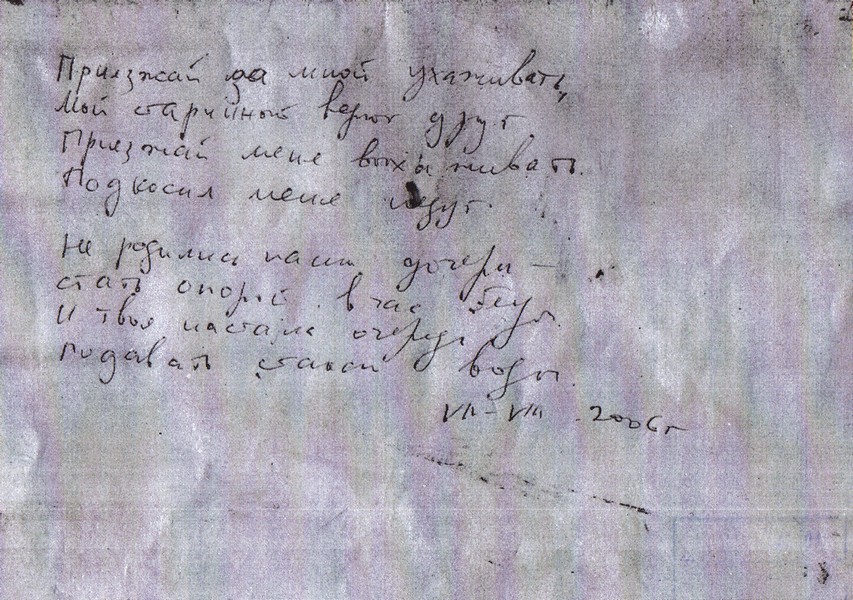 Приезжай за мной ухаживать,
Мой старинной верног друг
Приезжай меня выхаживать.
Подкосил меня недуг.
Не родились наши дочери –
стать опорой в час беды.
И твоя настала очередь
подавать стакан воды.
VII – VIII 2006 г